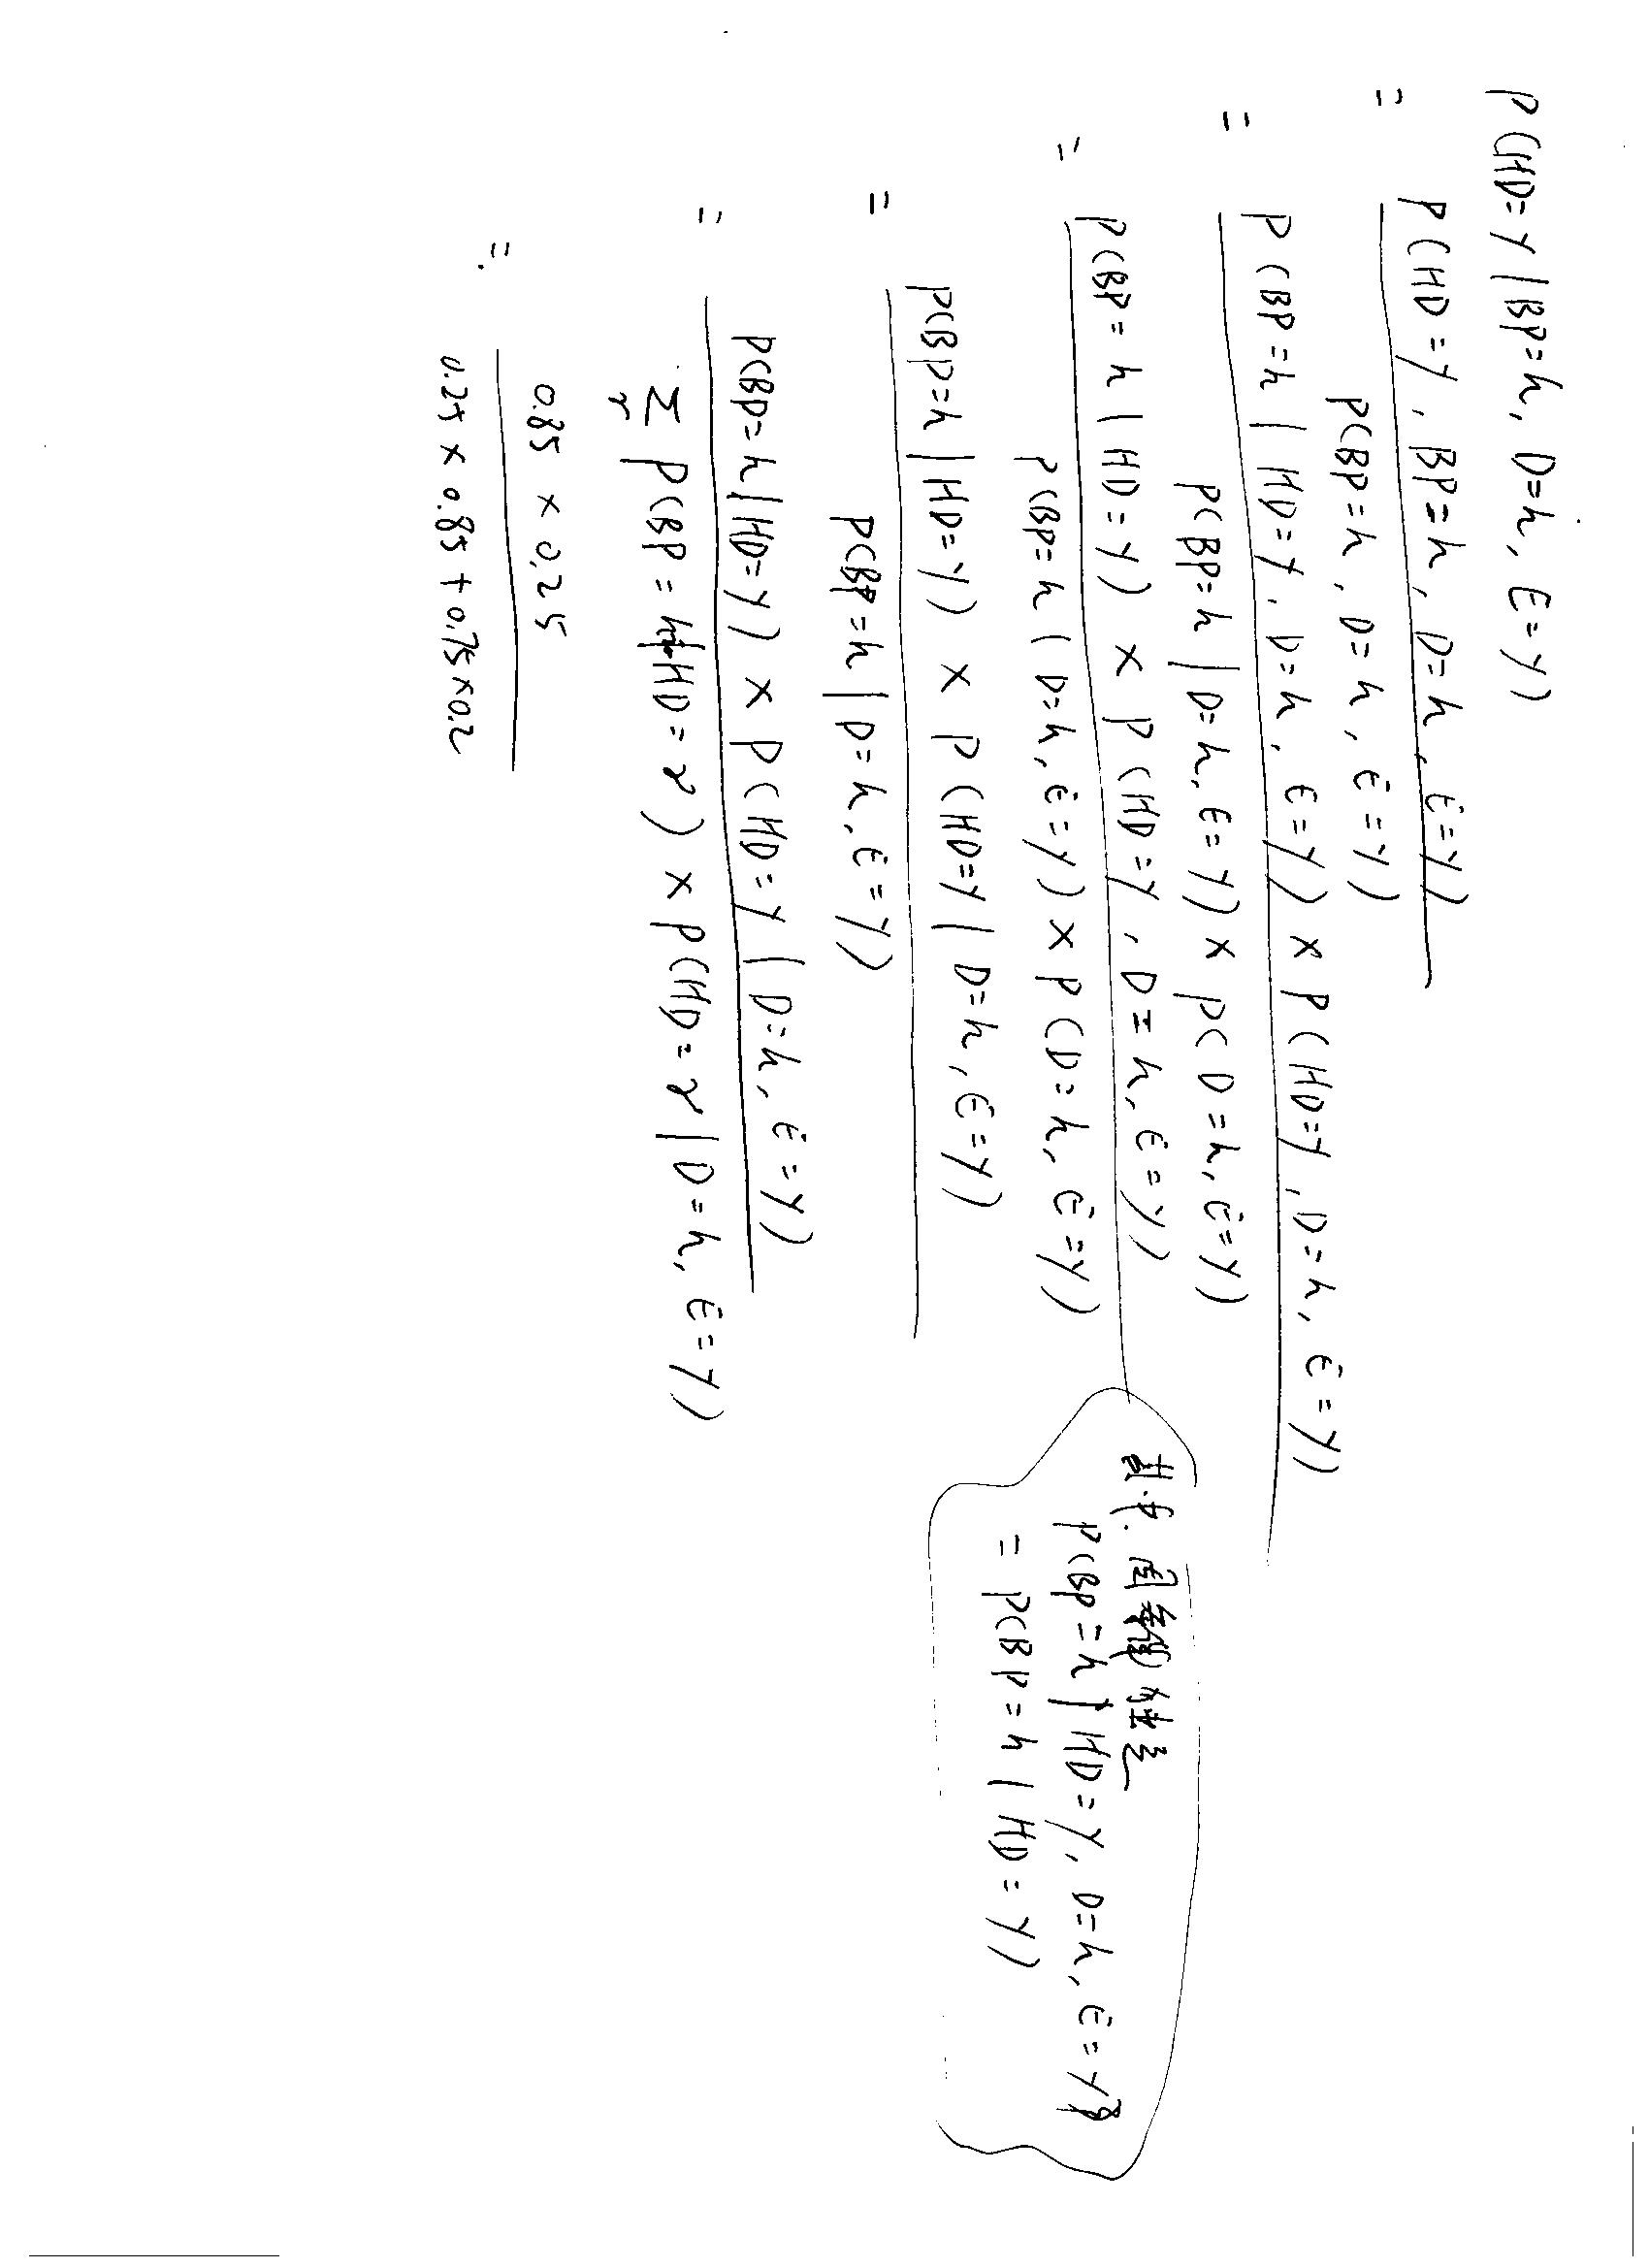 P(HD=y | BP=h, D=h, E=y)
= P(HD=y, BP=h, D=h, E=y) / P(BP=h, D=h, E=y)
= P(BP=h | HD=y, D=h, E=y) × P(HD=y, D=h, E=y) / P(BP=h | D=h, E=y) × P(D=h, E=y)
= P(BP=h | HD=y) × P(HD=y, D=h, E=y) / P(BP=h | D=h, E=y) × P(D=h, E=y)
其中, 因条件独立
P(BP=h | HD=y, D=h, E=y)
= P(BP=h | HD=y)
= P(BP=h | HD=y) × P(HD=y | D=h, E=y) / P(BP=h | D=h, E=y)
= P(BP=h | HD=y) × P(HD=y | D=h, E=y) / Σ_r P(BP=h | HD=r) × P(HD=r | D=h, E=y)
= 0.85 × 0.25 / 0.25 × 0.85 + 0.75 × 0.2